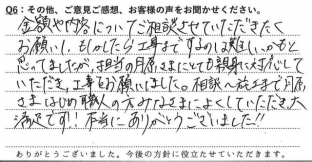 Q6：その他、ご意見ご感想、お客様の声をお聞かせください。
金額や内容についてご相談させていただきたく
お願いし、もしかしたら工事まですすめるのは難しいかもと
思ってましたが、担当の月原さまにとても親身に対応して
いただき、工事をお願いしました。相談〜施工まで月原
さまはじめ職人の方みなさまによくしていただき大
満足です!!本当にありがとうございました!!
ありがとうございました。今後の方針に役立たせていただきます。